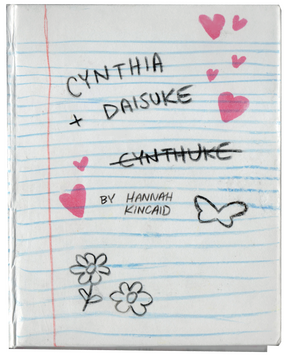 CYNTHIA
+ DAISUKE
CYNTHUKE
BY HANNAH
KINCAID